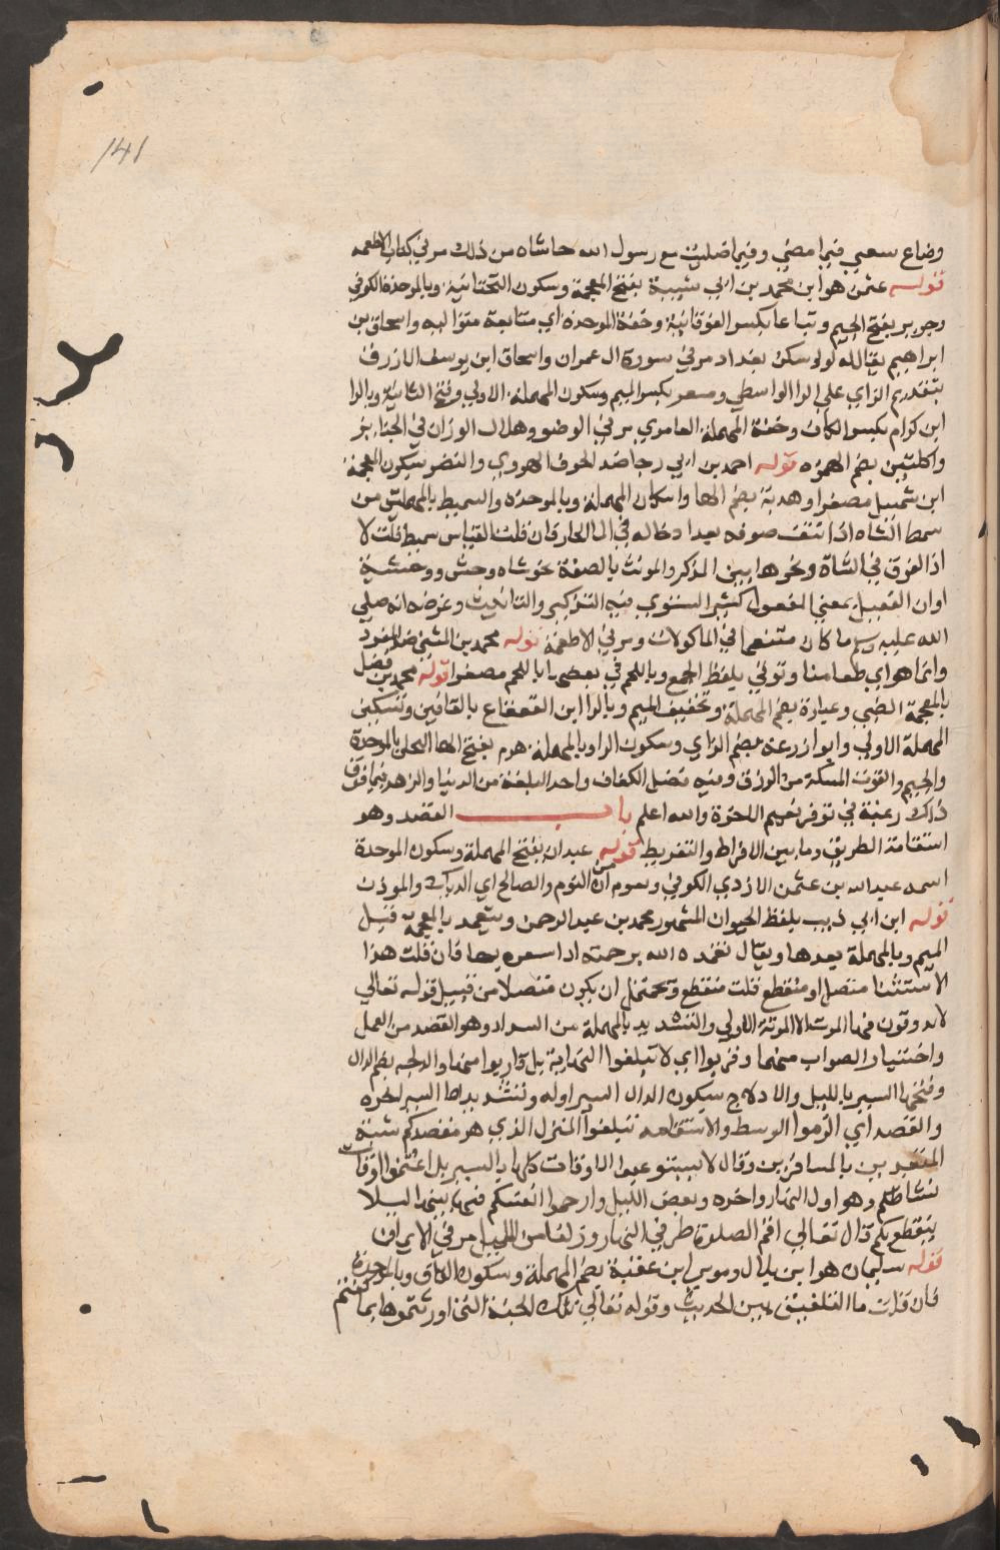 141
وضاع سعيي فيما مضى وفيما صليت مع رسول الله حاشاه من ذلك مر في كتاب الاطعمة
قوله عثمن هو ابن محمد بن ابي شيبة بفتح المعجمة وسكون التحتانية وبالموحدة الكوفي
وجرير بفتح الجيم وتباعا بكسر الفوقانية وخفة الموحدة اي متتابعة متوالية واسحاق بن
ابراهيم يقال له لولو سكن بغداد مر في سورة ال عمران واسحاق ابن يوسف الازرق
بتقديم الزاي على الرا الواسطي ومسعر بكسر الميم وسكون المهملة الاولى وفتح الثانية وبالرا
ابن كرام بكسر الكاف وخفة المهملة العامري مر في الوضو وهلال الوزان في الجنايز
واكلتين بضم الهمزه قوله احمد بن ابي رجا ضد الخوف الهروي والنضر بسكون المعجمة
ابن شميل مصغرا وهدبة بضم الها واسكان المهملة وبالموحده والسميط بالمهملتين من
سمط الشاه اذا نتف صوفه بعد ادخاله في الما الحار فان قلت القياس سميطة قلت لا
اذ الفرق في الشاة ونحوها بين المذكر والمونث بالصفة نحو شاه وحش ووحشية
او ان الفعيل بمعنى المفعول كثيرا يستوي فيه التذكير والتانيث وغرضه انه صلى
الله عليه وسلم ما كان متنعما في الماكولات ومر في الاطعمة قوله محمد بن المثنى ضد المفرد
وانما هو اي طعامنا وتوتى بلفظ الجمع وباللحم في بعضها باللحم مصغرا قوله محمد بن فضيل
بالمعجمة الضبي وعمارة بضم المهملة وتخفيف الميم وبالرا ابن القعقاع بالقافين وتسكين
المهملة الاولى وابو زرعة بضم الزاي وسكون الرا وبالمهملة هرم بفتح الها البجلي بالموحدة
والجيم والقوت المسكة من الرزق وفيه فضل الكفاف واخذ البلغة من الدنيا والزهد فيما فوق
ذلك رغبة في توفر نعيم الاخرة والله اعلم باب القصد وهو
استقامة الطريق وما بين الافراط والتفريط قوله عبدان بفتح المهملة وسكون الموحدة
اسمه عبد الله بن عثمن الازدي الكوفي ويقوم من النوم والصالح اي الديك والموذن
قوله ابن ابي ذيب بلفظ الحيوان المشهور محمد بن عبد الرحمن ويتغمد بالمعجمة قبل
الميم وبالمهملة بعدها ويقال تغمده الله برحمته اذا ستره بها فان قلت هذا
الاستثنا متصل او منقطع قلت منقطع ويحتمل ان يكون متصلا من قبيل قوله تعالى
لا يذوقون فيها الموت الا الموتة الاولى والتشديد بالمهملة من السداد وهو القصد من العمل
واختيار الصواب منهما وقربوا اي لا تبلغوا النهاية بل قاربوا منها والدلجة بضم الدال
وفتحها السير بالليل والادلاج بسكون الدال السير اوله وتشديدها السير اخره
والقصد اي الزموا الوسط والاستقامة تبلغوا المنزل الذي هو مقصدكم شبه
المتعبدين بالمسافرين وقال لا تستوعبوا الاوقات كلها بالسير بل اغتنموا اوقات
نشاطكم وهو اول النهار واخره وبعض الليل وارحموا انفسكم فيما بينهما ليلا
ينقطع بكم قال تعالى اقم الصلوة طرفي النهار وزلفا من الليل مر في الايمان
قوله سليمان هو ابن بلال وموسى ابن عقبة بضم المهملة وسكون القاف وبالموحدة
فان قلت ما التلفيق بين الحديث وقوله تعالى تلك الجنة التي اورثتموها بما كنتم